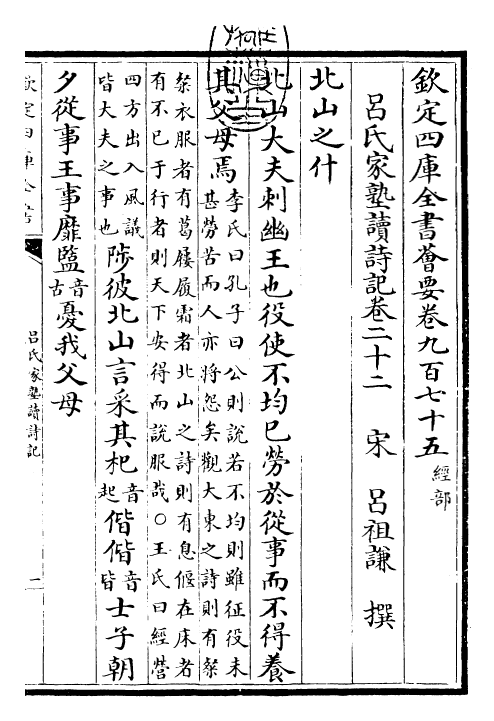 欽定四庫全書薈要卷九百七十五 經部
呂氏家塾讀詩記卷二十二 宋 呂祖謙 撰
北山之什
北山大夫刺幽王也役使不均已勞於從事而不得養
其父母焉 李氏曰孔子曰公則說若不均則雖征役未
甚勞苦而人亦將怨矣觀大東之詩則有粲
粲衣服者有葛屨履霜者北山之詩則有息偃在床者
有不已于行者則天下安得而說服哉○王氏曰經營
四方出入風議
皆大夫之事也 陟彼北山言采其杞音起偕偕音皆士子朝
夕從事王事靡盬音古憂我父母
欽定四庫全書
呂氏家塾讀詩記